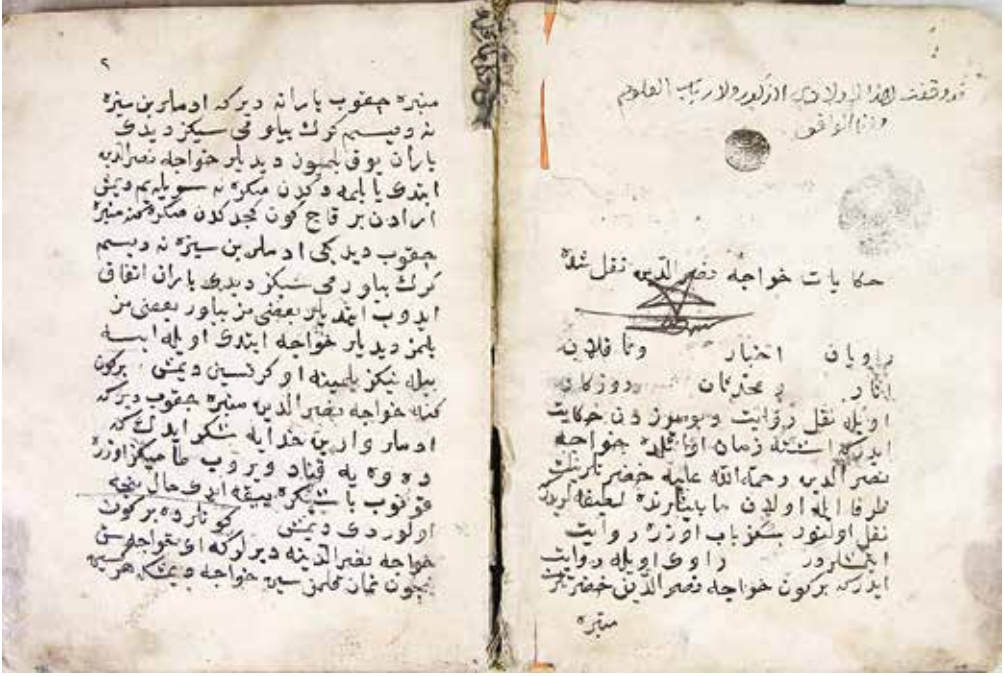 قد وقفت لهذا لاولادي الذكور ولارباب العلوم
وانا الواقف
حكايات خواجه نصر الدين نقل شده
راويان اخبار وناقلان
اثار و محدثان روزكار
اويله نقل و روايت و بو يوزدن حكايت
ايدركه زمان اوائلده خواجه
نصر الدين رحمة الله عليه حضرتلرينك
ظرفا ايله اولان مابينلرنده لطيفه لريدر
نقل اولنور باب اوزره روايت
ايتمشلردر راوى اويله روايت
ايدركه بركون خواجه نصر الدين حضرتلرى
منبره
٢
منبره چقوب يارانه ديركه ادملر بن سيزه
نه ديسم كرك بيلورمى سيكز ديدى
ياران يوق بلميون ديديلر خواجه نصر الدين
ايتدى يا بلمدوكدن صكره نه سويليم ديمش
ارادن بر قاچ كون كچدكدن صكره ينه منبره
چقوب ديدى كى ادملر بن سيزه نه ديسم
كرك بيلورمى سيكز ديدى ياران اتفاق
ايدوب ايتديلر بعضى مز بيلور بعضى مز
بلمز ديديلر خواجه ايتدى اويله ايسه
بيله نيكز بلمينه اوكرتسين ديمش بركون
كنه خواجه نصر الدين منبره چقوب ديركه
ادملر وارين خدايه شكر ايدك كه
ده وه يه قناد ويروب طاميكز اوزره
قونوب باشيكزه ييقه ايدى حال نيجه
اولوردى ديمش كونلرده بركون
خواجه نصر الدينه ديرلركه اى خواجه سن
نيچون نماز قلمزسين خواجه ديمش